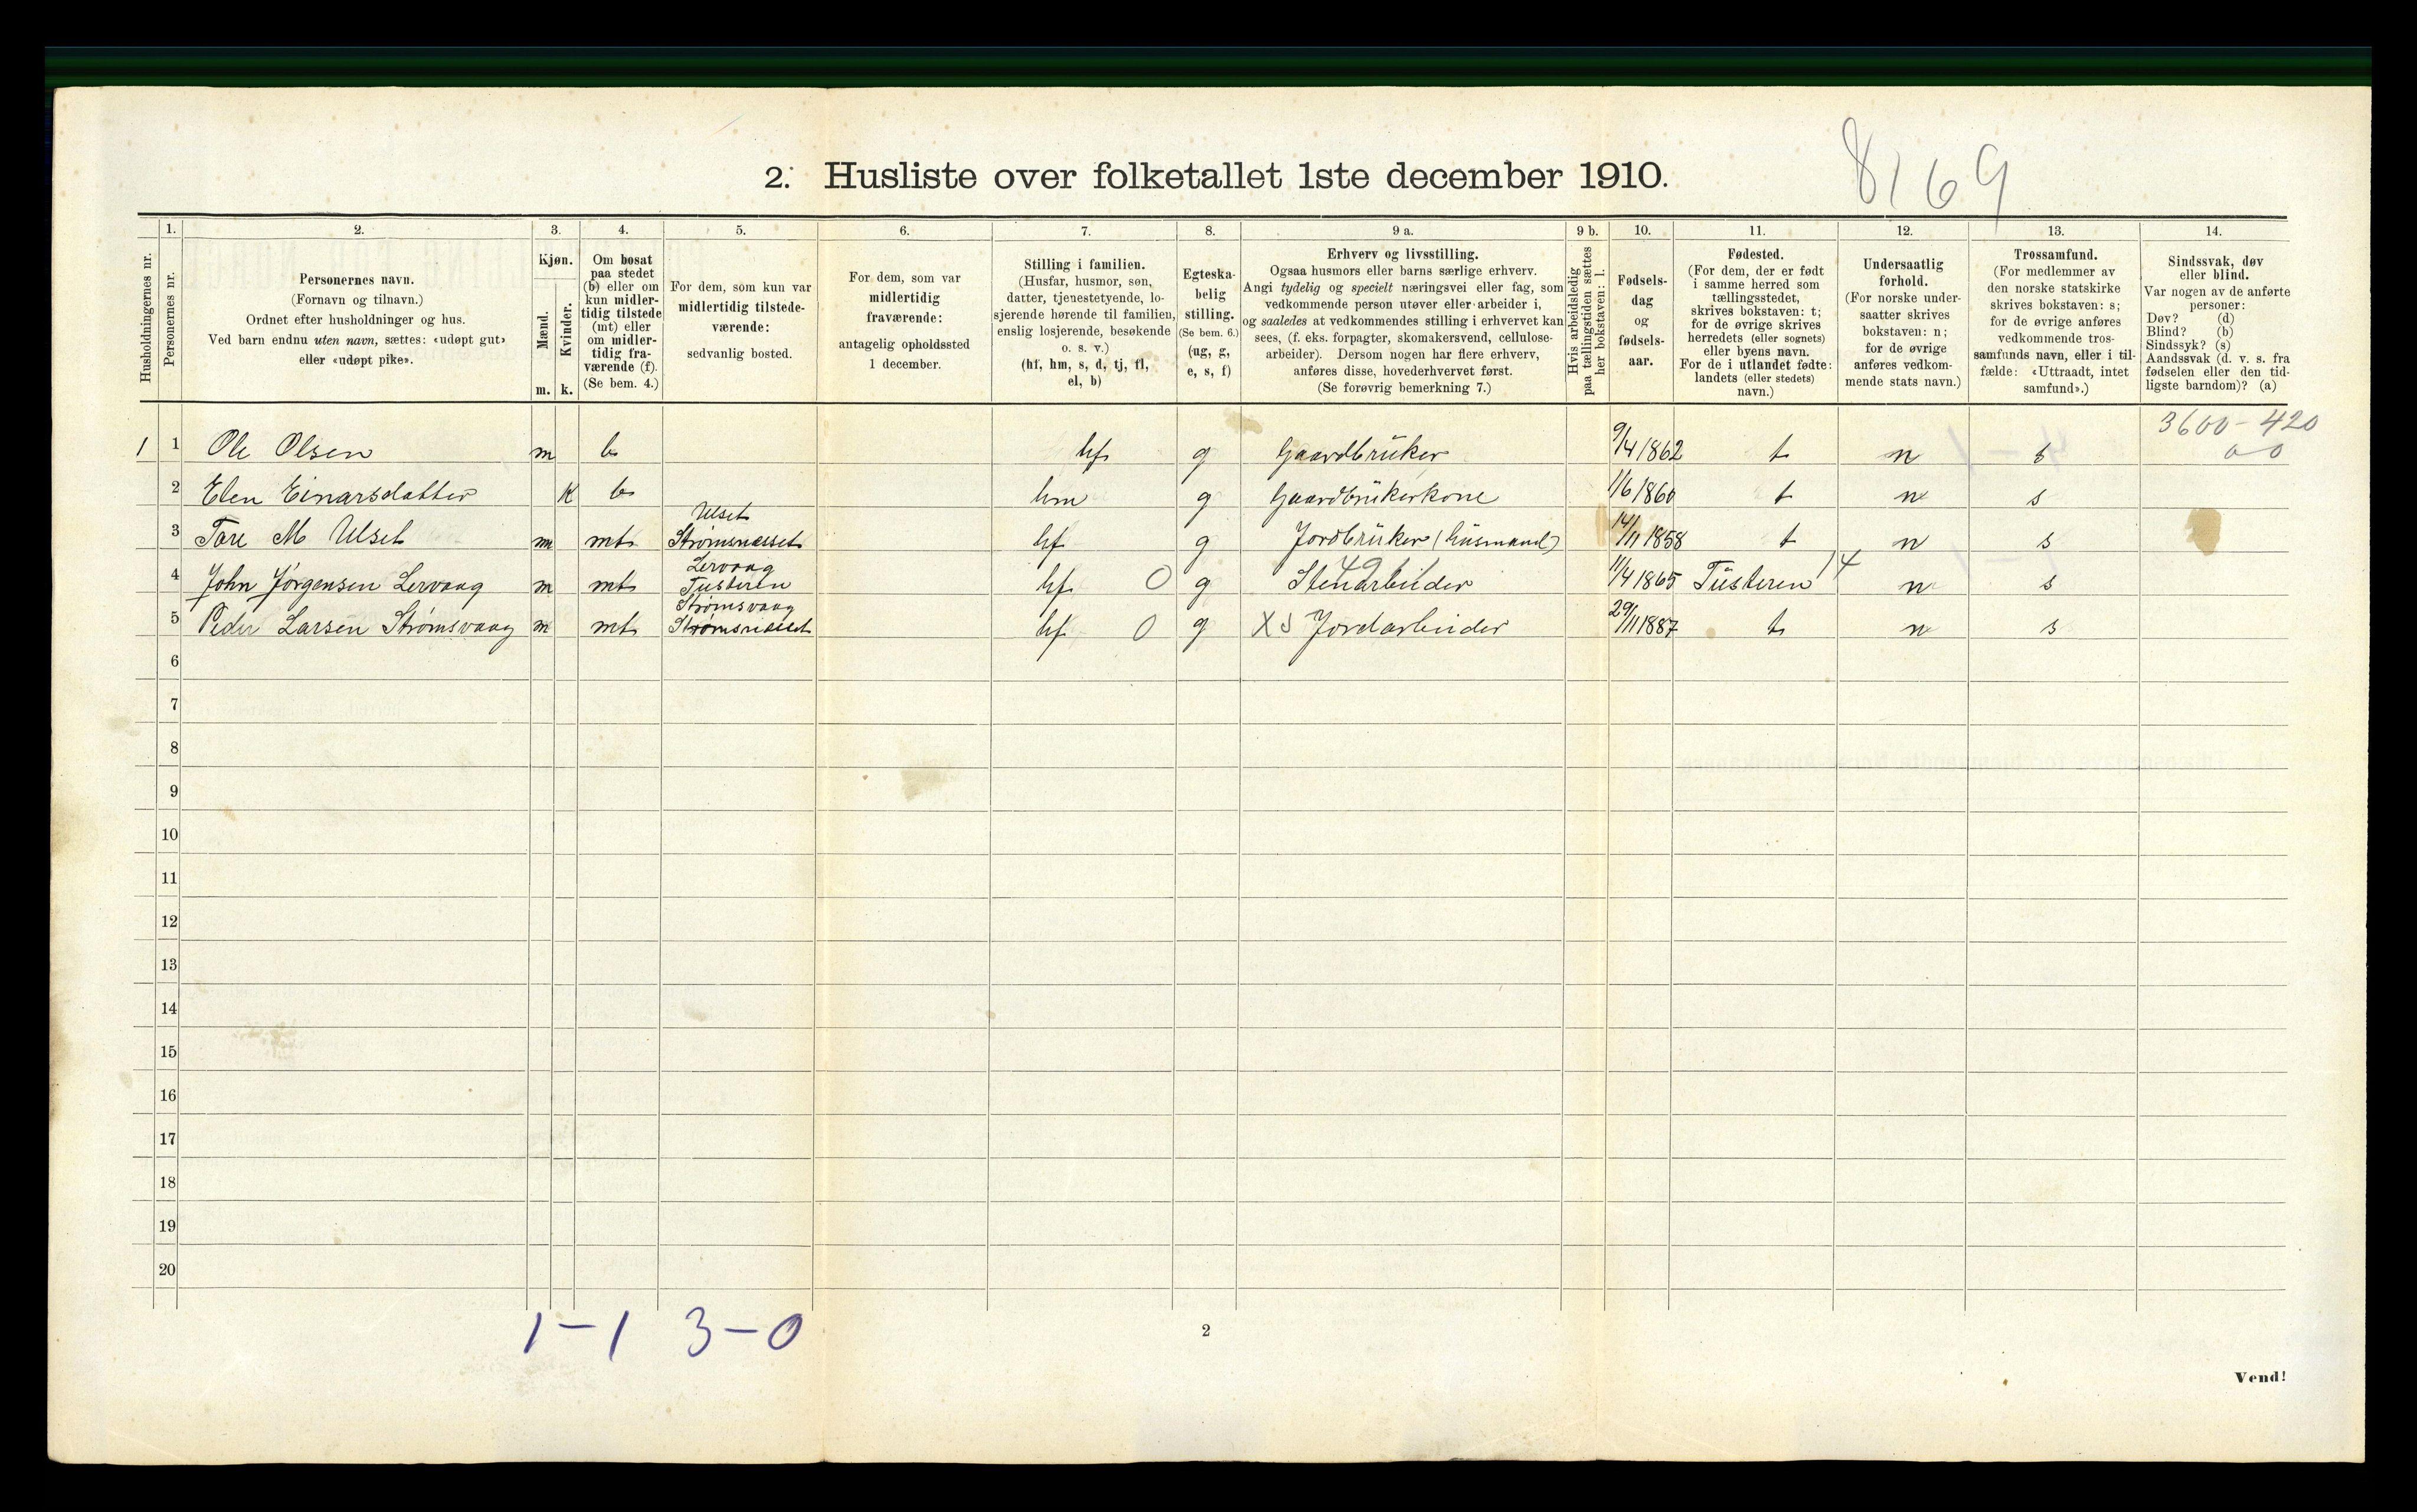 8169
2. Husliste over folketallet 1ste december 1910.
Husholdningernes nr.
1.
Personernes nr.
2.
Personernes navn.
(Fornavn og tilnavn.)
Ordnet efter husholdninger og hus.
Ved barn endnu uten navn, sættes: «udøpt gut»
eller «udøpt pike».
3.
Kjøn.
Mænd.
Kvinder.
m. k.
4.
Om bosat
paa stedet
(b) eller om
kun midler-
tidig tilstede
(mt) eller
om midler-
tidig fra-
værende (f).
(Se bem. 4.)
5.
For dem, som kun var
midlertidig tilstede-
værende:
sedvanlig bosted.
6.
For dem, som var
midlertidig
fraværende:
antagelig opholdssted
1 december.
7.
Stilling i familien.
(Husfar, husmor, søn,
datter, tjenestetyende, lo-
sjerende hørende til familien,
enslig losjerende, besøkende
o. s. v.)
(hf, hm, s, d, tj, fl,
el, b)
8.
Egteska-
belig
stilling.
(Se bem. 6.)
(ug, g,
e, s, f)
9 a.
Erhverv og livsstilling.
Ogsaa husmors eller barns særlige erhverv.
Angi tydelig og specielt næringsvei eller fag, som
vedkommende person utøver eller arbeider i,
og saaledes at vedkommendes stilling i erhvervet kan
sees, (f. eks. forpagter, skomakersvend, cellulose-
arbeider). Dersom nogen har flere erhverv,
anføres disse, hovederhvervet først.
(Se forøvrig bemerkning 7.)
9 b.
Hvis arbeidsledig
paa tællingstiden sættes
her bokstaven: l.
10.
Fødsels-
dag
og
fødsels-
aar.
11.
Fødested.
(For dem, der er født
i samme herred som
tællingsstedet,
skrives bokstaven: t;
for de øvrige skrives
herredets (eller sognets)
eller byens navn.
For de i utlandet fødte:
landets (eller stedets)
navn.)
12.
Undersaatlig
forhold.
(For norske under-
saatter skrives
bokstaven: n;
for de øvrige
anføres vedkom-
mende stats navn.)
13.
Trossamfund.
(For medlemmer av
den norske statskirke
skrives bokstaven: s;
for de øvrige anføres
vedkommende tros-
samfunds navn, eller i til-
fælde: «Uttraadt, intet
samfund».)
14.
Sindssvak, døv
eller blind.
Var nogen av de anførte
personer:
Døv? (d)
Blind? (b)
Sindssyk? (s)
Aandssvak (d. v. s. fra
fødselen eller den tid-
ligste barndom)? (a)
3600-420
0-0
1 1 Ole Olsen m b hf g Gaardbrüker 9/4 1862 t n s
2 Elen Einarsdatter k b hm g Gaardbrükerkone 1/6 1860 t n s
3 Tore M Ulset m mt Ulset Strømsnesset hf g Jordbrüker (hüsmand) 14/11 1858 t n s
4 John Jørgensen Lervaag m mt Lervaag Tusteren hf 0 g Stenarbeider 11/4 1865 Tüsteren 14 n s
5 Peder Larsen Strømsvaag m mt Strømsvaag Strømsnesset hf 0 g XJ Jordarbeider 29/11 1887 t n s
6
7
8
9
10
11
12
13
14
15
16
17
18
19
20
1-1 3-0
2
Vend!